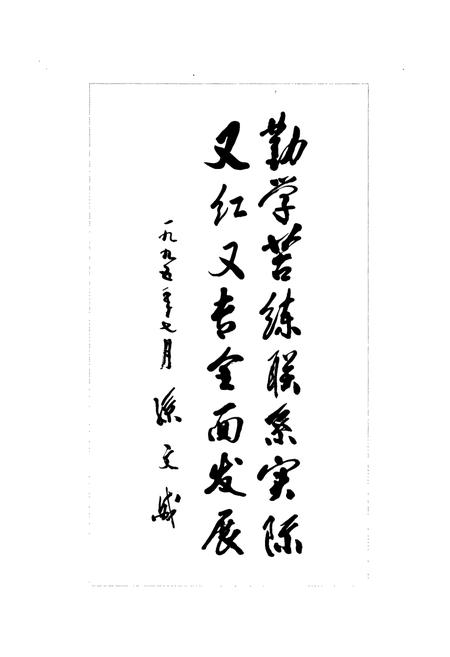 勤学苦练联系实际
又红又专全面发展
一九九五年七月 孙文盛